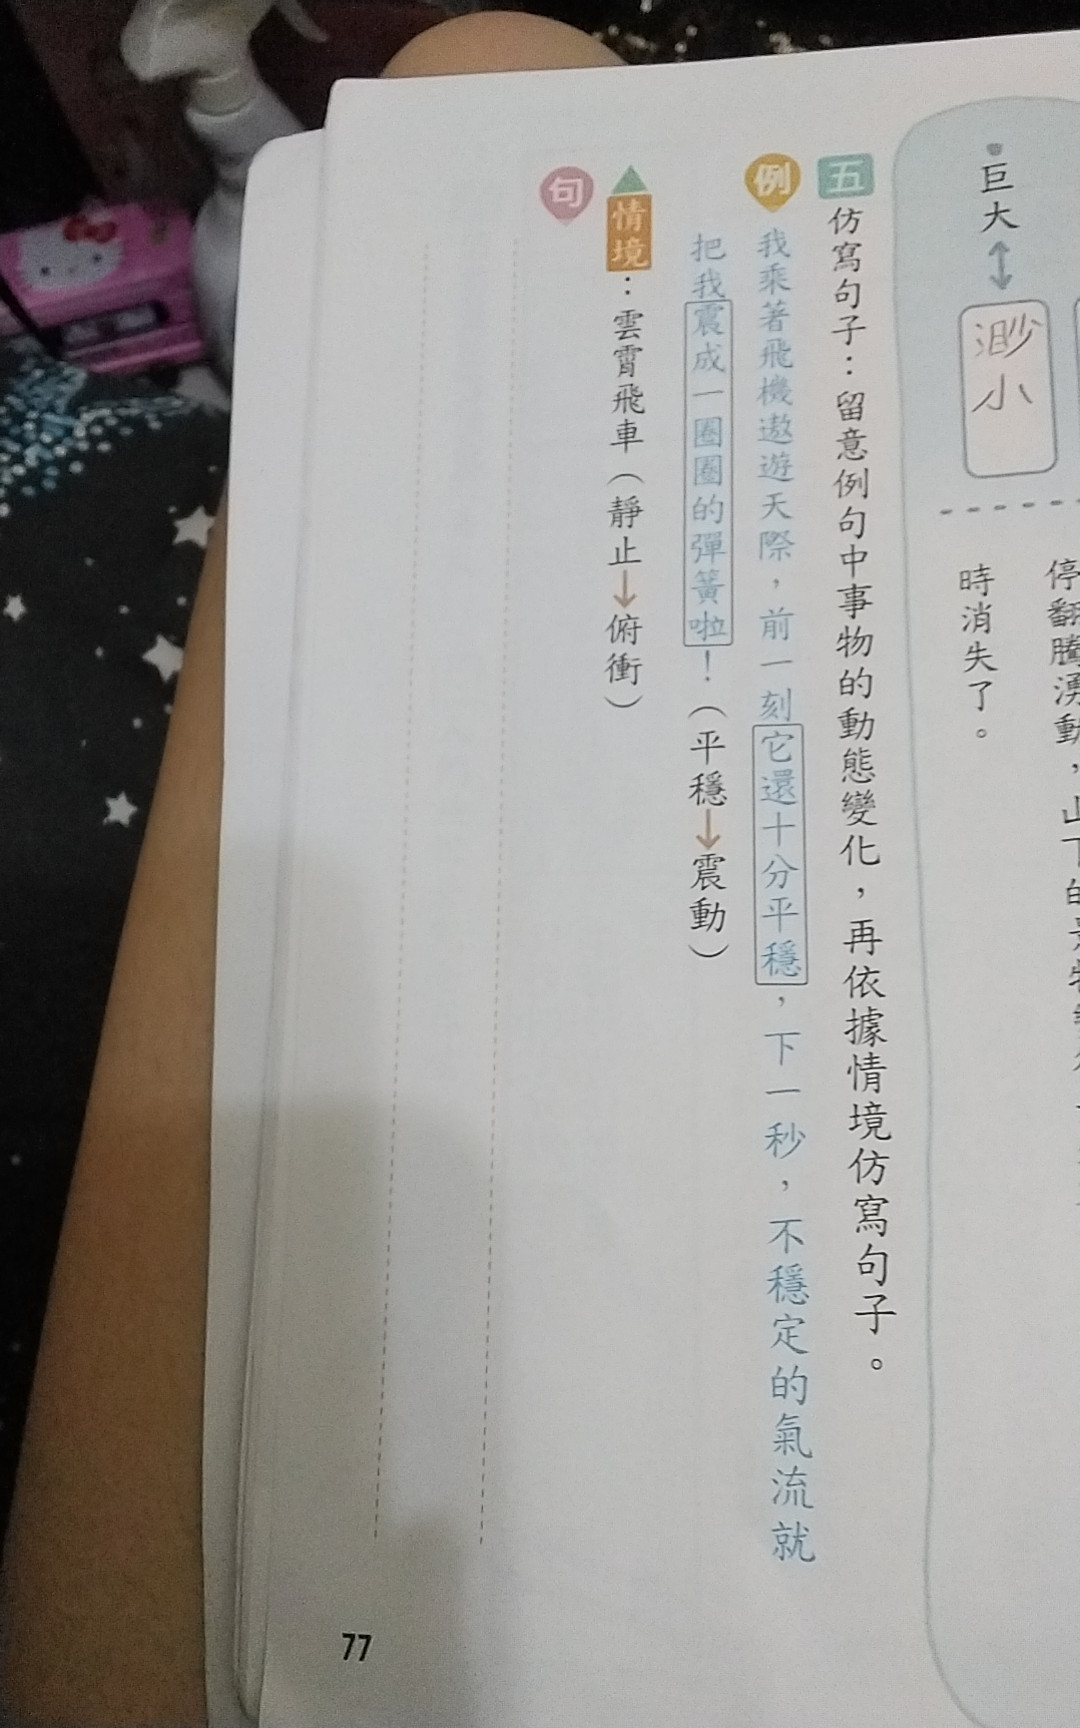 巨大↔渺小
時消失了。
五 仿寫句子：留意例句中事物的動態變化，再依據情境仿寫句子。
例 我乘著飛機遨遊天際，前一刻它還十分平穩，下一秒，不穩定的氣流就
把我震成一圈圈的彈簧啦！（平穩→震動）
情境：雲霄飛車（靜止→俯衝）
句
77